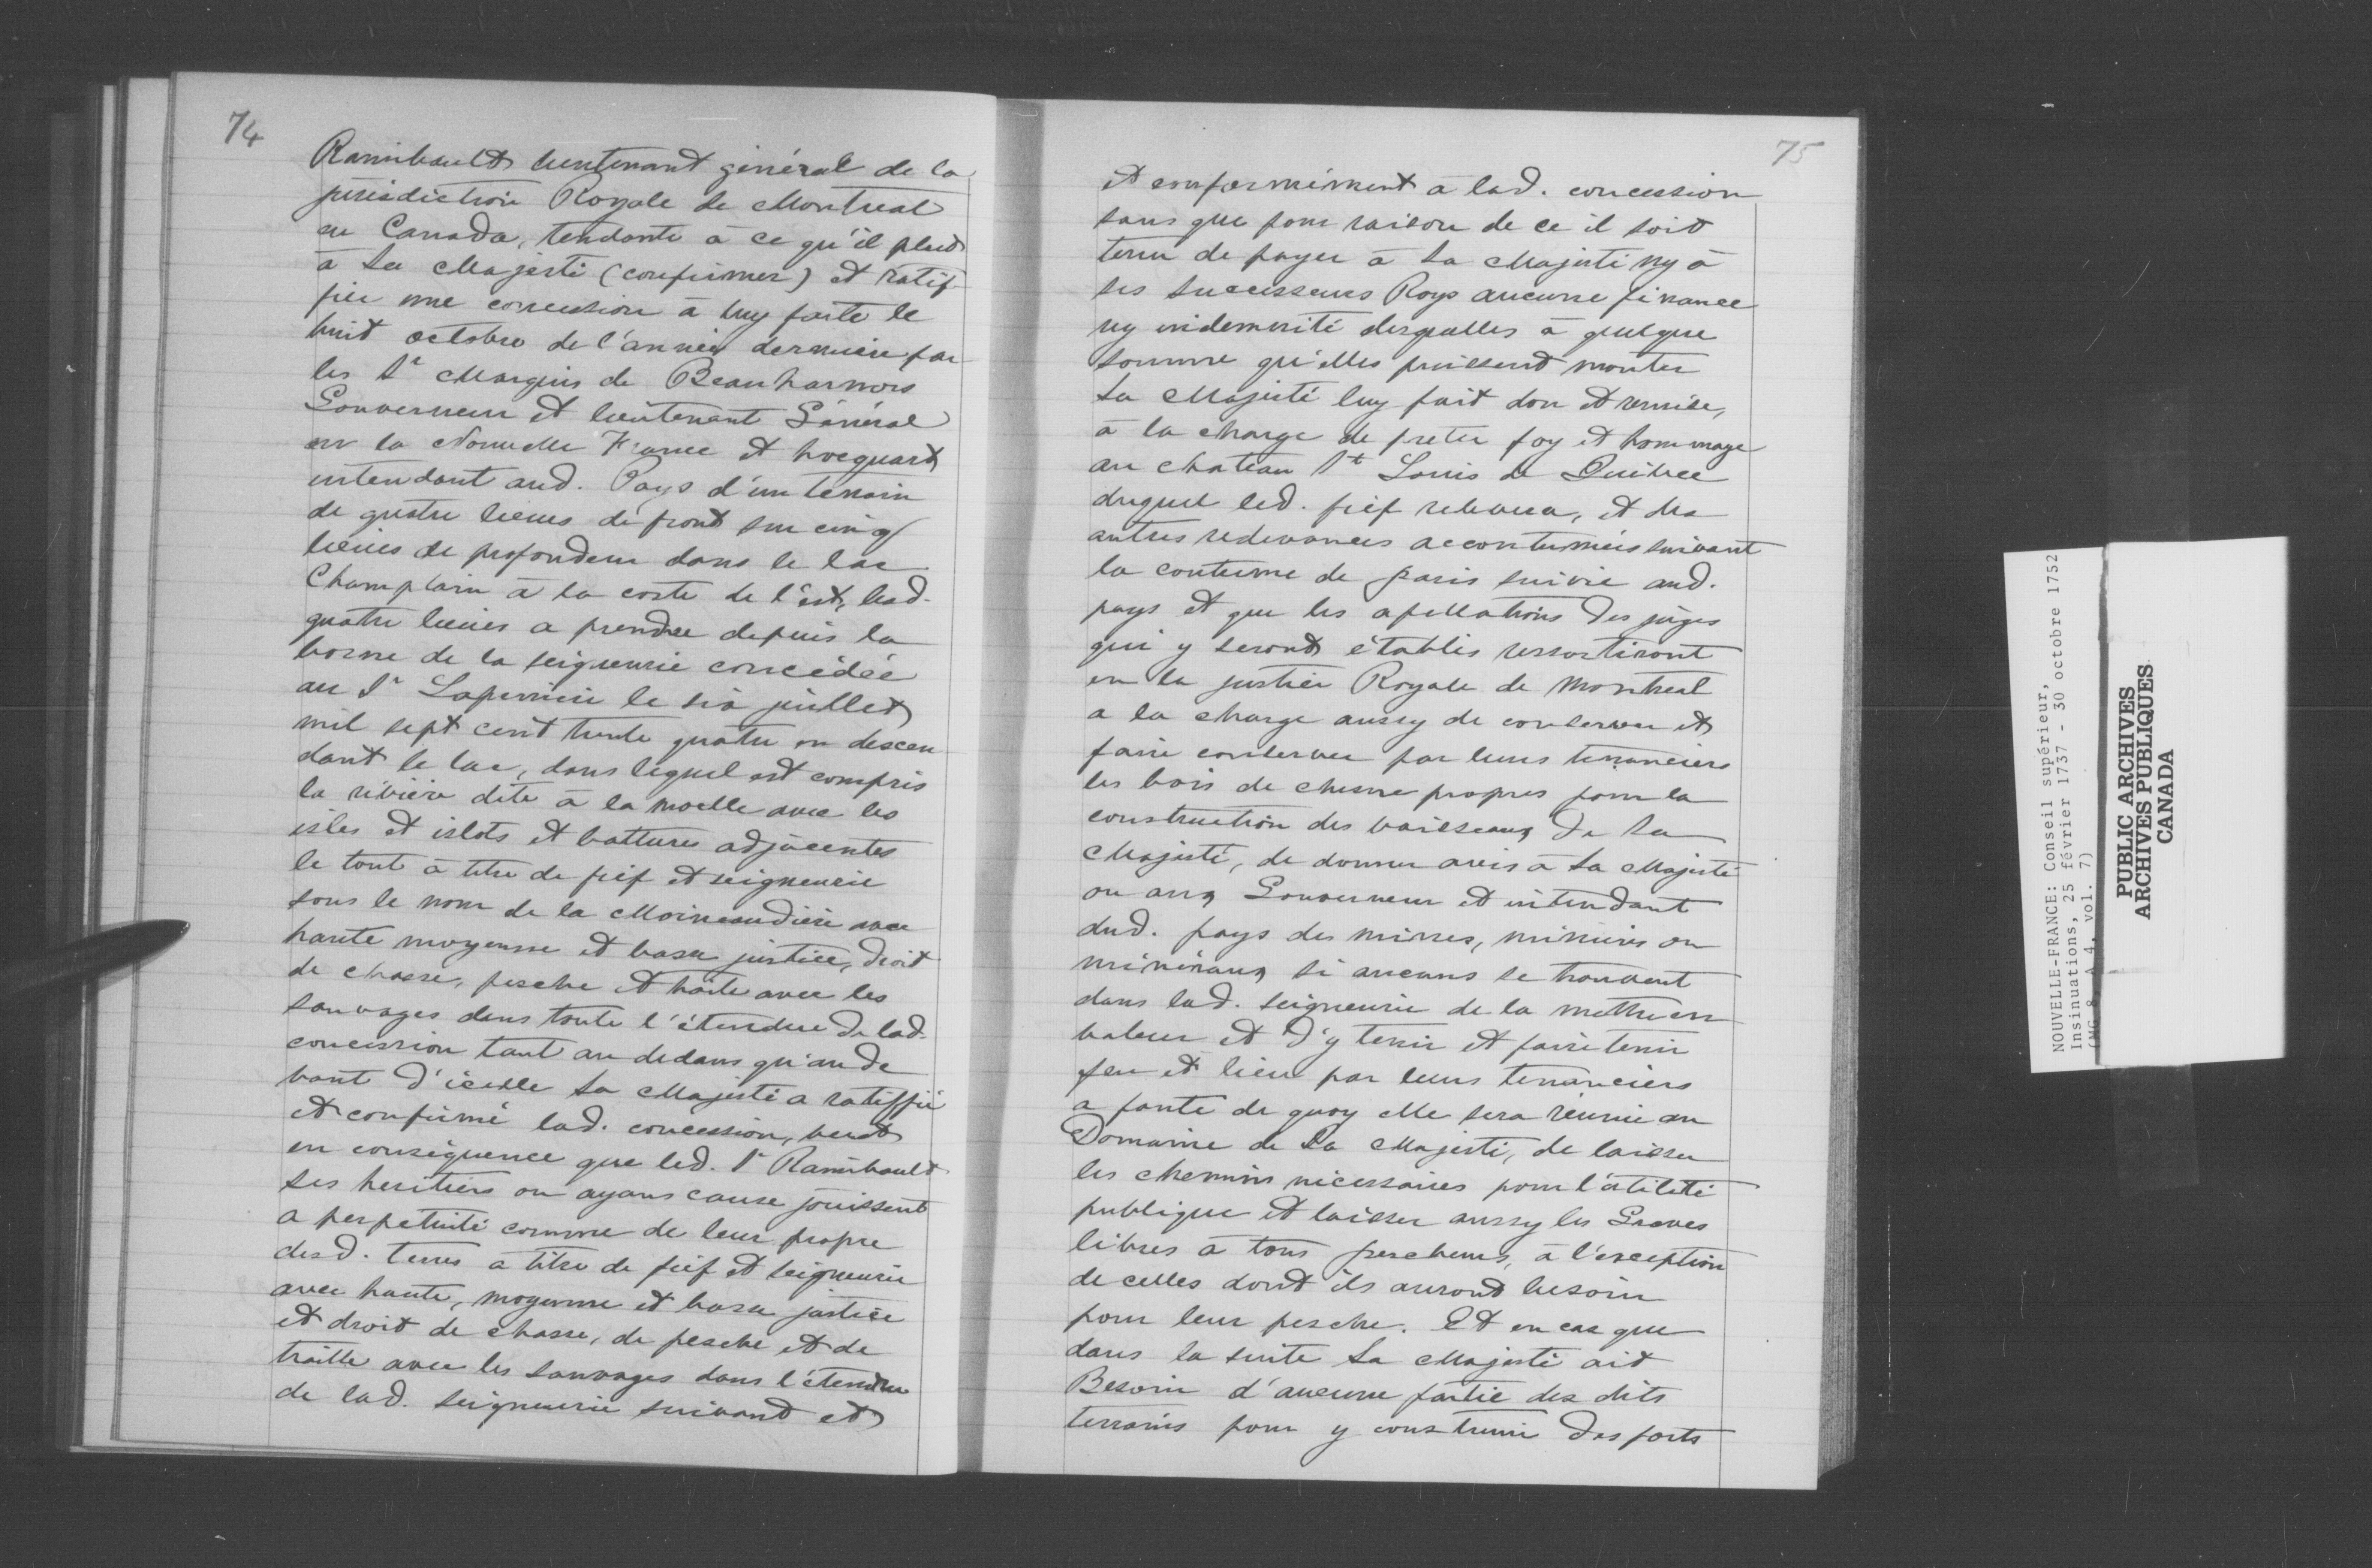 74
Raimbault lieutenant général de la
jurisdiction Royale de Montreal
en Canada, tendante à ce qu'il plut
à Sa Majesté (confirmer) et ratif-
fier une concession à luy faite le
huit octobre de l'année dernière par
les Sr Marquis de Beauharnois
Gouverneur et lieutenant Général
en la Nouvelle France et hocquart
intendant aud. Pays d'un terrain
de quatre lieues de front sur cinq
lieües de profondeur dans le lac
Champlain à la coste de l'est, lesd.
quatre lieues a prendre depuis la
borne de la seigneurie concédée
au Sr Laperrière le six juillet
mil sept cent trente quatre en descen
dant le lac, dans lequel est compris
la rivière dite à la moelle avec les
isles et islots et battures adjacentes
le tout à titre de fief et seigneurie
sous le nom de la Moineaudière avec
haute moyenne et basse justice, droit
de chasse, pesche et traite avec les
sauvages dans toute l'étendue de lad.
concession tant au dedans qu'au de
vant d'icelle Sa Majesté a ratiffié
et confirmé lad. concession, veut
en conséquence que led. Sr Raimbault
ses heritiers ou ayans cause jouissent
a perpetuité comme de leur propre
desd. terres à titre de fief et seigneurie
avec haute, moyenne et basse justice
et droit de chasse, de pesche et de
traitte avec les sauvages dans l'étendue
de lad. seigneurie suivant et
75
et conformément à lad. concession
sans que pour raison de ce il soit
tenu de payer à Sa Majesté ny à
ses successeurs Roys aucune finance
ny indemnité desquelles à quelque
somme qu'elles puissent monter
Sa Majesté luy fait don et remise,
à la charge de preter foy et hommage
au chateau St Louis de Québec
duquel led. fief relevera, et des
autres redevances accoutumées suivant
la coutume de paris suivie aud.
pays et que les apellations des juges
qui y seront établis ressortiront
en la justice Royale de Montreal
a la charge aussy de conserver et
faire conserver par leurs tenanciers
les bois de chesne propres pour la
construction des vaisseaux de Sa
Majesté, de donner avis à Sa Majesté
ou aux Gouverneur et intendant
dud. pays des mines, minières ou
minéraux si aucuns se trouvent
dans lad. seigneurie de la mettre en
valeur et d'y tenir et faire tenir
feu et lieu par leurs tenanciers
a faute de quoy elle sera réunie au
Domaine de Sa Majesté, de laisser
les chemins nécessaires pour l'utilité
publique et laisser aussy les Graves
libres à tous pescheurs, à l'exception
de celles dont ils auront besoin
pour leur pesche. Et en cas que
dans la suite Sa Majesté ait
Besoin d'aucune partie des dits
terrains pour y construire des forts
NOUVELLE-FRANCE: Conseil supérieur,
Insinuations, 25 février 1737 - 30 octobre 1752
(MG 8, A 4, vol. 7)
PUBLIC ARCHIVES
ARCHIVES PUBLIQUES
CANADA